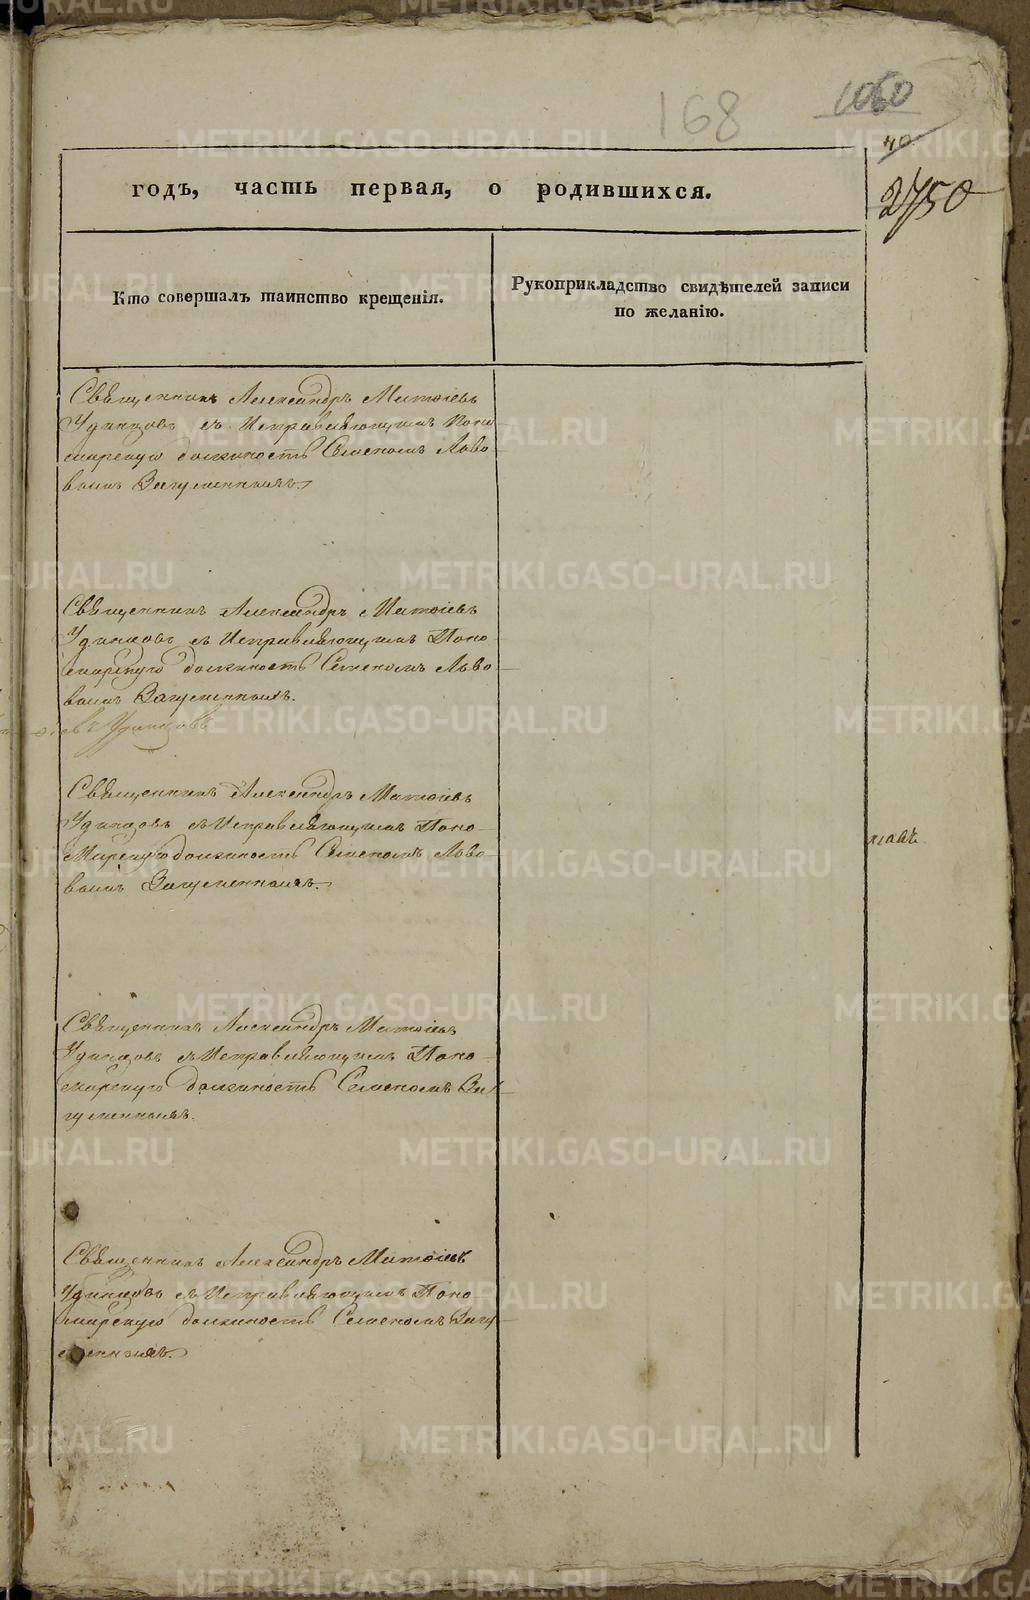 168
1060
40
2750
годъ, часть первая, о родившихся.
Кто совершалъ таинство крещенія.
Рукоприкладство свидѣтелей записи
по желанію.
Священникъ Александръ Матѳіевъ
Удинцовъ съ Исправляющимъ Поно
марскую должность Семеномъ Льво
вымъ Загуменныхъ.
Священникъ Александръ Матѳіевъ
Удинцовъ съ Исправляющимъ Поно
марскую должность Семеномъ Льво
вымъ Загуменныхъ.
Удинцовъ
Священникъ Александръ Матѳіевъ
Удинцовъ съ Исправляющимъ Поно
марскую должность Семеномъ Льво
вымъ Загуменныхъ.
Священникъ Александръ Матѳіевъ
Удинцовъ съ Исправляющимъ Поно
марскую должность Семеномъ За
гуменныхъ.
Священникъ Александръ Матѳіевъ
Удинцовъ съ Исправляющимъ Поно
марскую должность Семеномъ Загу
менныхъ.
METRIKI.GASO-URAL.RU